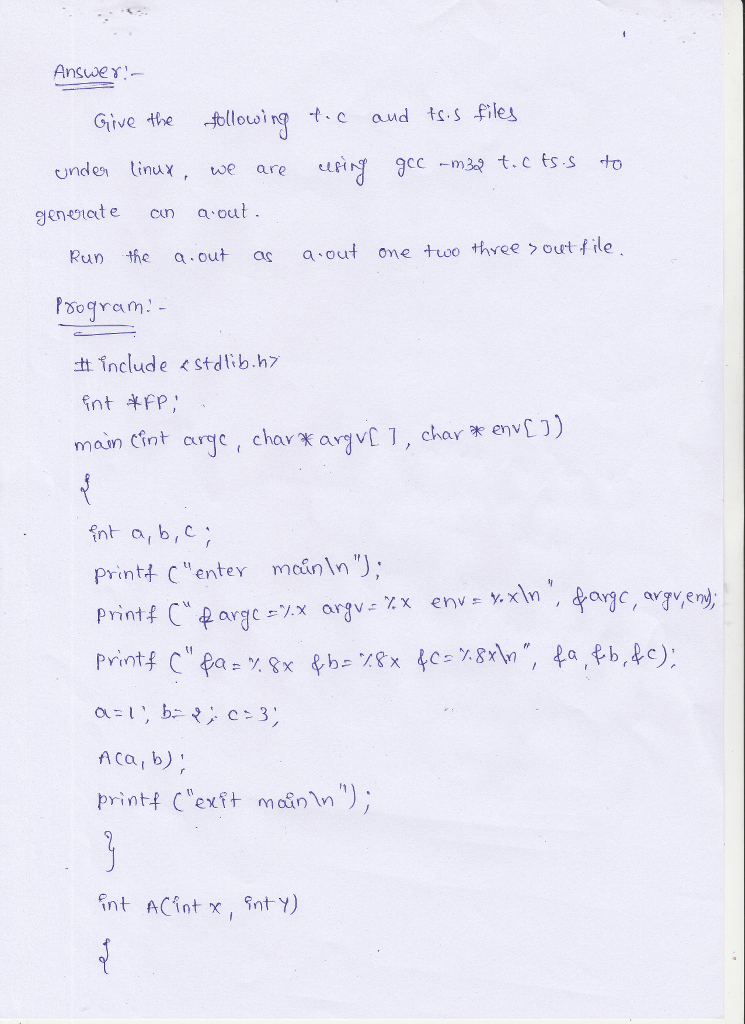 Answer:-
Give the following t.c and ts.s files
under linux, we are using gcc -m32 t.c ts.s to
generate an a.out.
Run the a.out as a.out one two three > outfile.
Program:-
#include <stdlib.h>
int *FP;
main (int argc, char* argv[], char* env[])
{
int a, b, c;
printf ("enter main\n");
printf ("&argc=%x argv=%x env=%x\n", &argc, argv, env);
printf ("&a=%8x &b=%8x &c=%8x\n", &a, &b, &c);
a=1; b=2; c=3;
A(a, b);
printf ("exit main\n");
}
int A(int x, int y)
{